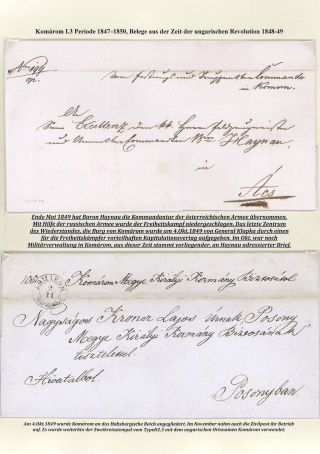 Komárom I.3 Periode 1847-1850, Belege aus der Zeit der ungarischen Revolution 1848-49
Commando
in Komorn.
Seine Excellenz
Haynau.
in
Acs
Ende Mai 1849 hat Baron Haynau die Kommandantur der österreichischen Armee übernommen.
Mit Hilfe der russischen Armee wurde der Freiheitskampf niedergeschlagen. Das letzte Zentrum
des Wiederstandes, die Burg von Komárom wurde am 4.Okt.1849 von General Klapka durch einen
für die Freiheitskämpfer vorteilhaften Kapitulationsvertag aufgegeben. Im Okt. war noch
Militärverwaltung in Komárom, aus dieser Zeit stammt vorliegender, an Haynau adressierter Brief.
Komárom Megye Királyi Kormány Biztosától
Nagyságos Kroner Lajos Urnak Posony
Megye Királyi Kormány Biztosának
tisztelettel.
Hivatalból.
Posonyban.
Am 4.Okt.1849 wurde Komárom an das Habsburgische Reich angegliedert. Im November nahm auch die Zivilpost ihr Betrieb
auf. Es wurde weiterhin der Zweikreisstempel vom TypeD2.3 mit dem ungarischen Ortsnamen Komárom verwendet.